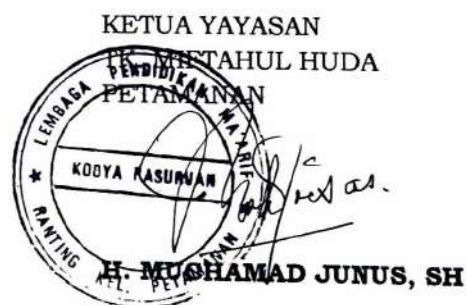 KETUA YAYASAN
TK. MIFTAHUL HUDA
PETAMANAN
LEMBAGA PENDIDIKAN MA'ARIF
KODYA PASURUAN
RANTING KEL. PETAMANAN
H. MUCHAMAD JUNUS, SH